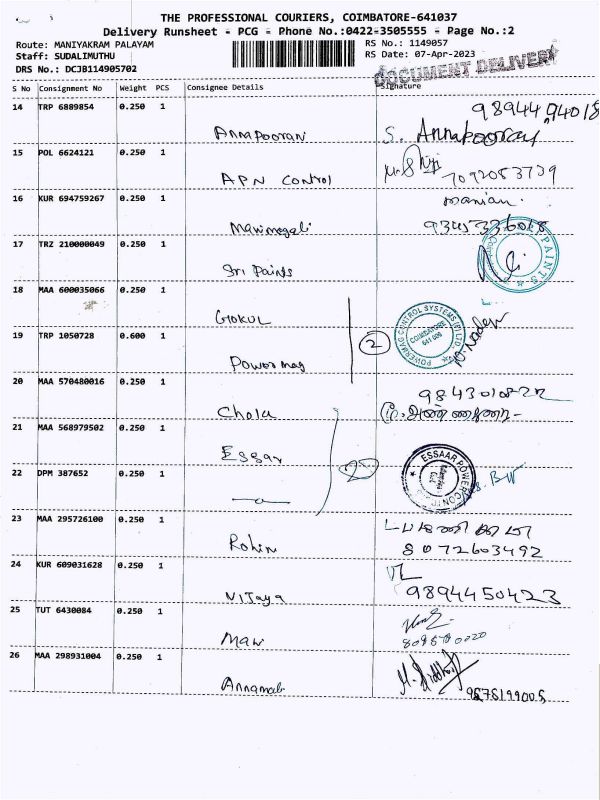 THE PROFESSIONAL COURIERS, COIMBATORE-641037
Delivery Runsheet - PCG - Phone No.:0422-3505555 - Page No.:2
Route: MANIYAKRAM PALAYAM
Staff: SUDALIMUTHU
DRS No.: DCJB114905702
RS No.: 1149057
RS Date: 07-Apr-2023
DOCUMENT DELIVERY
S No Consignment No Weight PCS Consignee Details Signature
14 TRP 6889854 0.250 1
Annapooran S. Annapooran
15 POL 6624121 0.250 1
APN Control 7092053739
16 KUR 694759267 0.250 1
manian.
Manimegali
17 TRZ 210000049 0.250 1
Sri Paints
PAINTS
18 MAA 600035066 0.250 1
Gokul
POWERMAG CONTROL SYSTEMS (P) LTD.
COIMBATORE
641 006
19 TRP 1050728 0.600 1
2
Powermag
20 MAA 570480016 0.250 1
Chola
21 MAA 568979502 0.250 1
Essar
ESSAAR POWER CONTROL
22 DPM 387652 0.250 1
2
23 MAA 295726100 0.250 1
Rohini 8072603492
24 KUR 609031628 0.250 1
Vijaya 9894450423
25 TUT 6430084 0.250 1
Maw
26 MAA 298931004 0.250 1